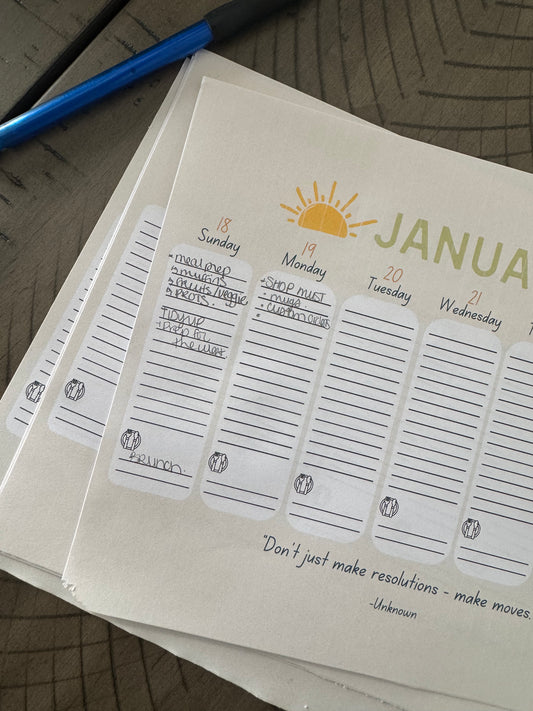 JANUA
18
Sunday
- meal prep
↳ muffins
↳ fruits/veggie
↳ PROTS.
TIDY UP
- prep for
the week
BRUNCH.
19
Monday
- SHOP MUST
- mugs
- custom orders
20
Tuesday
21
Wednesday
"Don't just make resolutions - make moves.
-Unknown